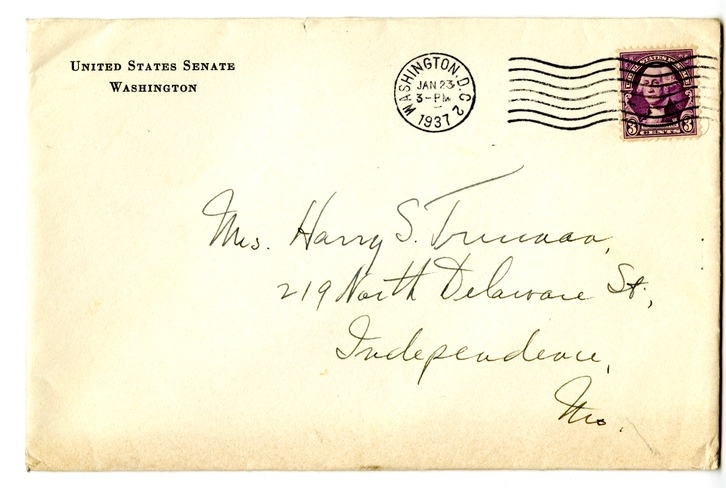 UNITED STATES SENATE
WASHINGTON
WASHINGTON, D.C. 2
JAN 23
3-PM
1937
3 CENTS 3
Mrs. Harry S. Truman,
219 North Delaware St.,
Independence,
Mo.